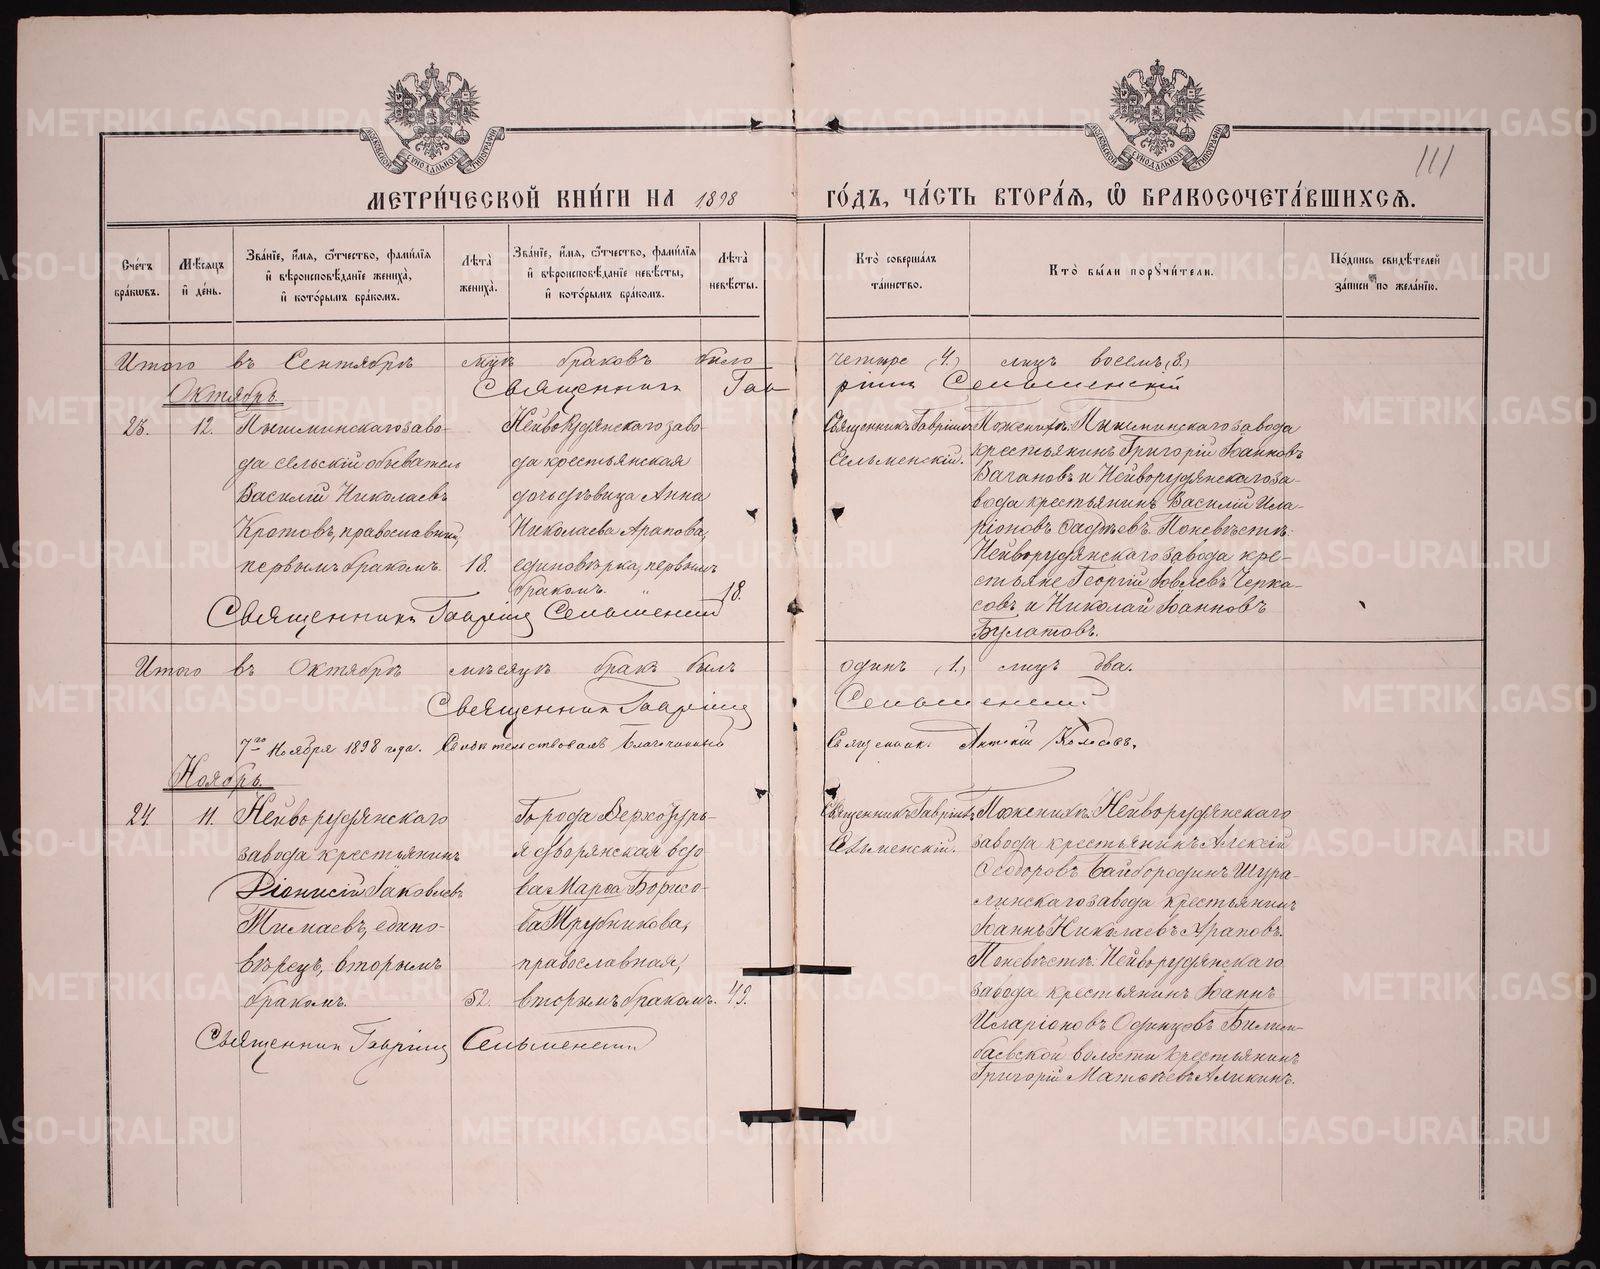 111
МЕТРИ́ЧЕСКОЙ КНИ́ГИ НА 1898 ГО́ДЪ, ЧА́СТЬ ВТОРА́Я, Ѿ БРАКОСОЧЕТА́ВШИХСЯ.
Сче́тъ бра́кωвъ.
Мѣ́сяцъ и҆ де́нь.
Зва́нїе, и҆́мя, ѻ҆́тчество, фами́лїя и҆ вѣроисповѣ́данїе жениха̀, и҆ кото́рымъ бра́комъ.
Лѣ́та̀ жениха̀.
Зва́нїе, и҆́мя, ѻ҆́тчество, фами́лїя и҆ вѣроисповѣ́данїе невѣ́сты, и҆ кото́рымъ бра́комъ.
Лѣ́та̀ невѣ́сты.
Кто̀ соверша́лъ та́инство.
Кто̀ бы́ли порꙋчи́тели.
По́дпись свидѣ́телей за́писи по жела́нїю.
Итого въ Сентябрѣ мцѣ браковъ было четыре (4.) лицъ восемь (8.)
Священникъ Гавріилъ Сельменскій
Октябрь.
23. 12.
Пышминскаго заво-
да сельскій обыватель
Василій Николаевъ
Кротовъ, православный,
первымъ бракомъ. 18.
Нейворудянскаго заво-
да крестьянская
дочь дѣвица Анна
Николаева Арапова,
единовѣрка, первымъ
бракомъ. " 18.
Священникъ Гавріилъ
Сельменскій.
По женихѣ: Пышминскаго завода
крестьянинъ Григорій Іоанновъ
Вагановъ и Нейворудянскаго за-
вода крестьянинъ Василій Ила-
ріоновъ По невѣстѣ:
Нейворудянскаго завода кре-
стьяне Георгій Іовлевъ Черка-
совъ и Николай Іоанновъ
Булатовъ.
Священникъ Гавріилъ Сельменскій
Итого въ Октябрѣ мѣсяцѣ бракъ былъ одинъ (1.) лицъ два.
Священникъ Гавріилъ Сельменскій
7го Ноября 1898 года. Свидѣтельствовалъ Благочинный Священникъ
Ноябрь.
24. 11.
Нейворудянскаго
завода крестьянинъ
Діонисій Іаковлевъ
Тимаевъ, едино-
вѣрецъ, вторымъ
бракомъ. 52.
Города Верхотурь-
я дворянская вдо-
ва Марѳа Борисо-
ва Трубникова,
православная,
вторымъ бракомъ. 49.
Священникъ Гавріилъ
Сельменскій.
По женихѣ: Нейворудянскаго
завода крестьянинъ Алексій
Ѳеодоровъ Байбородинъ Шура-
линскаго завода крестьянинъ
Іоаннъ Николаевъ Араповъ.
По невѣстѣ: Нейворудянскаго
завода крестьянинъ Іоаннъ
Иларіоновъ Одинцовъ Билим-
баевской волости крестьянинъ
Григорій Матѳеевъ Аликинъ.
Священникъ Гавріилъ Сельменскій
METRIKI.GASO-URAL.RU